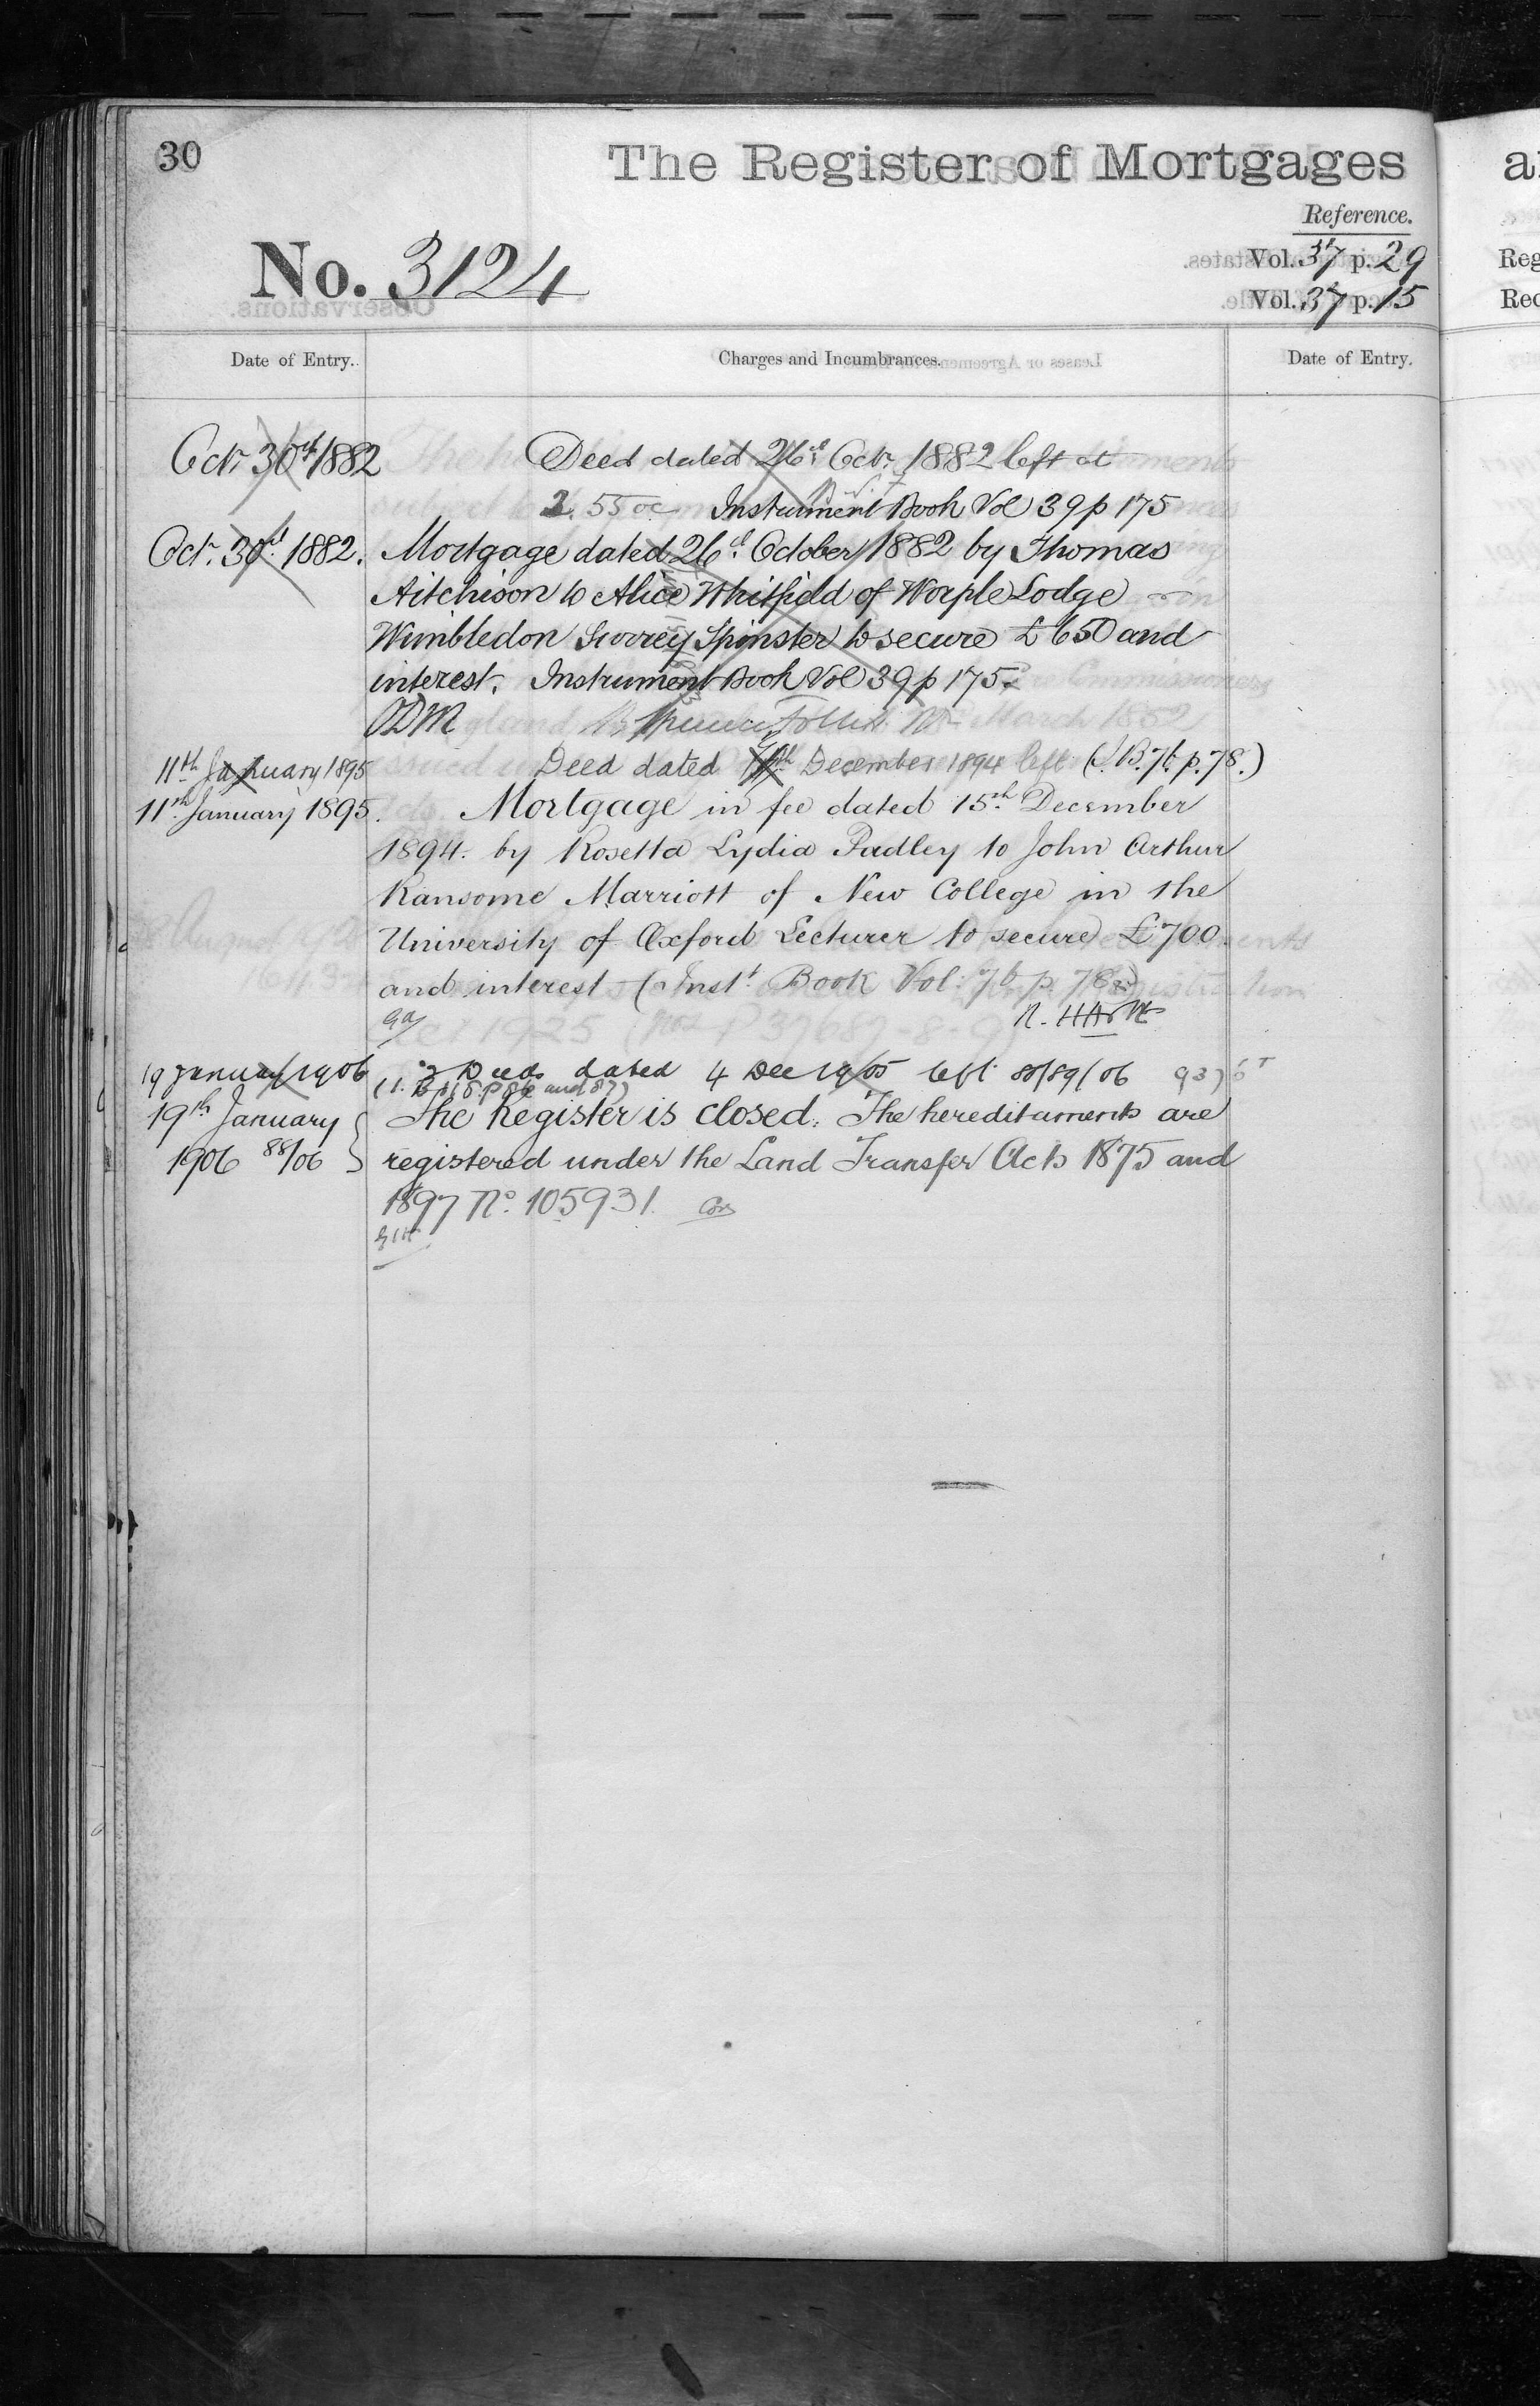 30
The Register of Mortgages
Reference.
No. 3124
Vol. 37 p. 29
Vol. 37 p. 15
Date of Entry.
Charges and Incumbrances.
Date of Entry.
Octr. 30th 1882
Deed dated 26th Octr. 1882 left at
2. 55 oc Instrument Book Vol 39 p 175
Octr. 30th 1882.
Mortgage dated 26th October 1882 by Thomas
Aitchison to Alice Whitfield of Worple Lodge
Wimbledon Surrey Spinster to secure £650 and
interest. Instrument Book Vol 39 p 175.
ODM
11th January 1895
Deed dated December 1894 left (I.B. 76. p. 78.)
11th January 1895.
Mortgage in fee dated 15th December
1894. by Rosetta Lydia Padley to John Arthur
Ransome Marriott of New College in the
University of Oxford Lecturer to secure £700
and interest (Instt. Book Vol. 76 p. 78.)
19 January 1906
2 Deeds dated 4 Dec 1905 left 88/89/06
(I. B. 118. P 86 and 87)
19th January
1906 88/06
The Register is closed. The hereditaments are
registered under the Land Transfer Acts 1875 and
1897 No. 105931.
a
Reg
Rec